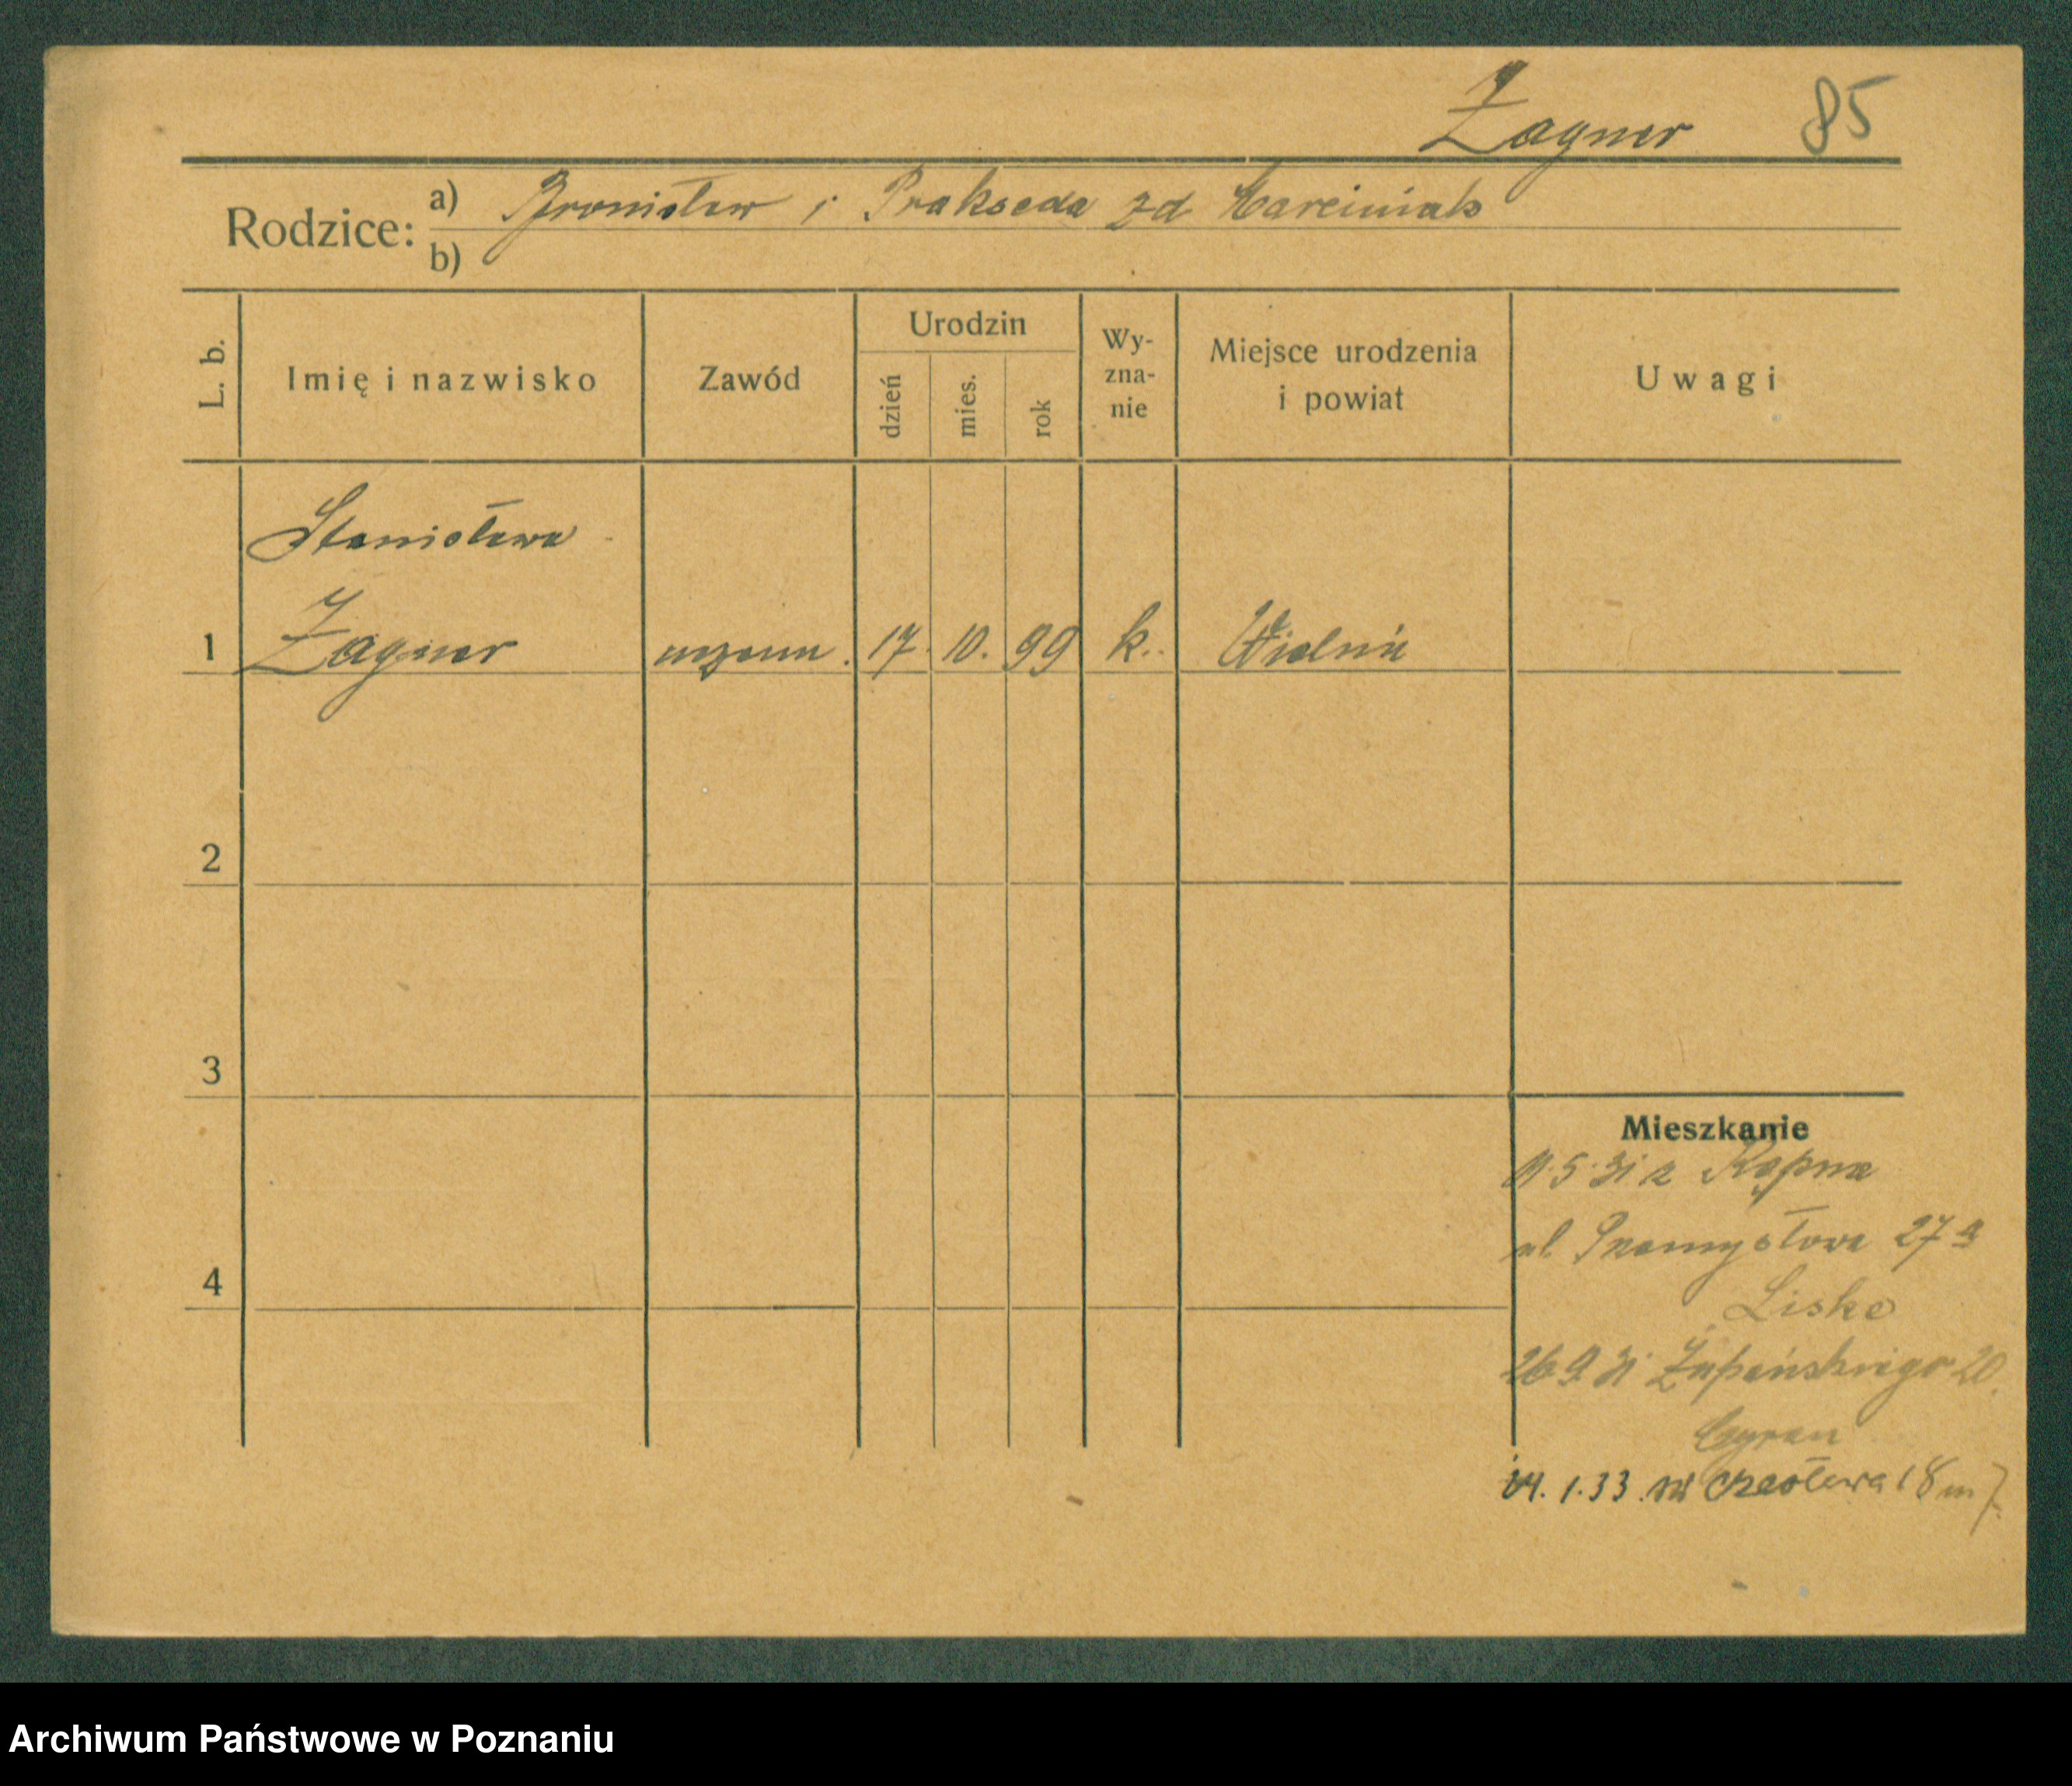 Żagner 85
Rodzice: a) Bronisław i Prakseda zd Marciniak
b)
L. b. Imię i nazwisko Zawód Urodzin dzień mies. rok Wy-zna-nie Miejsce urodzenia i powiat Uwagi
Stanisława
1 Żagner 17. 10. 99 k.
2
3
Mieszkanie
5 31 z
4 ul. Przemysłowa 27 a
Liske
26 9 31 Żupańskiego 20.
Cyran
1.33. św Czesława 18 m 7.
Archiwum Państwowe w Poznaniu